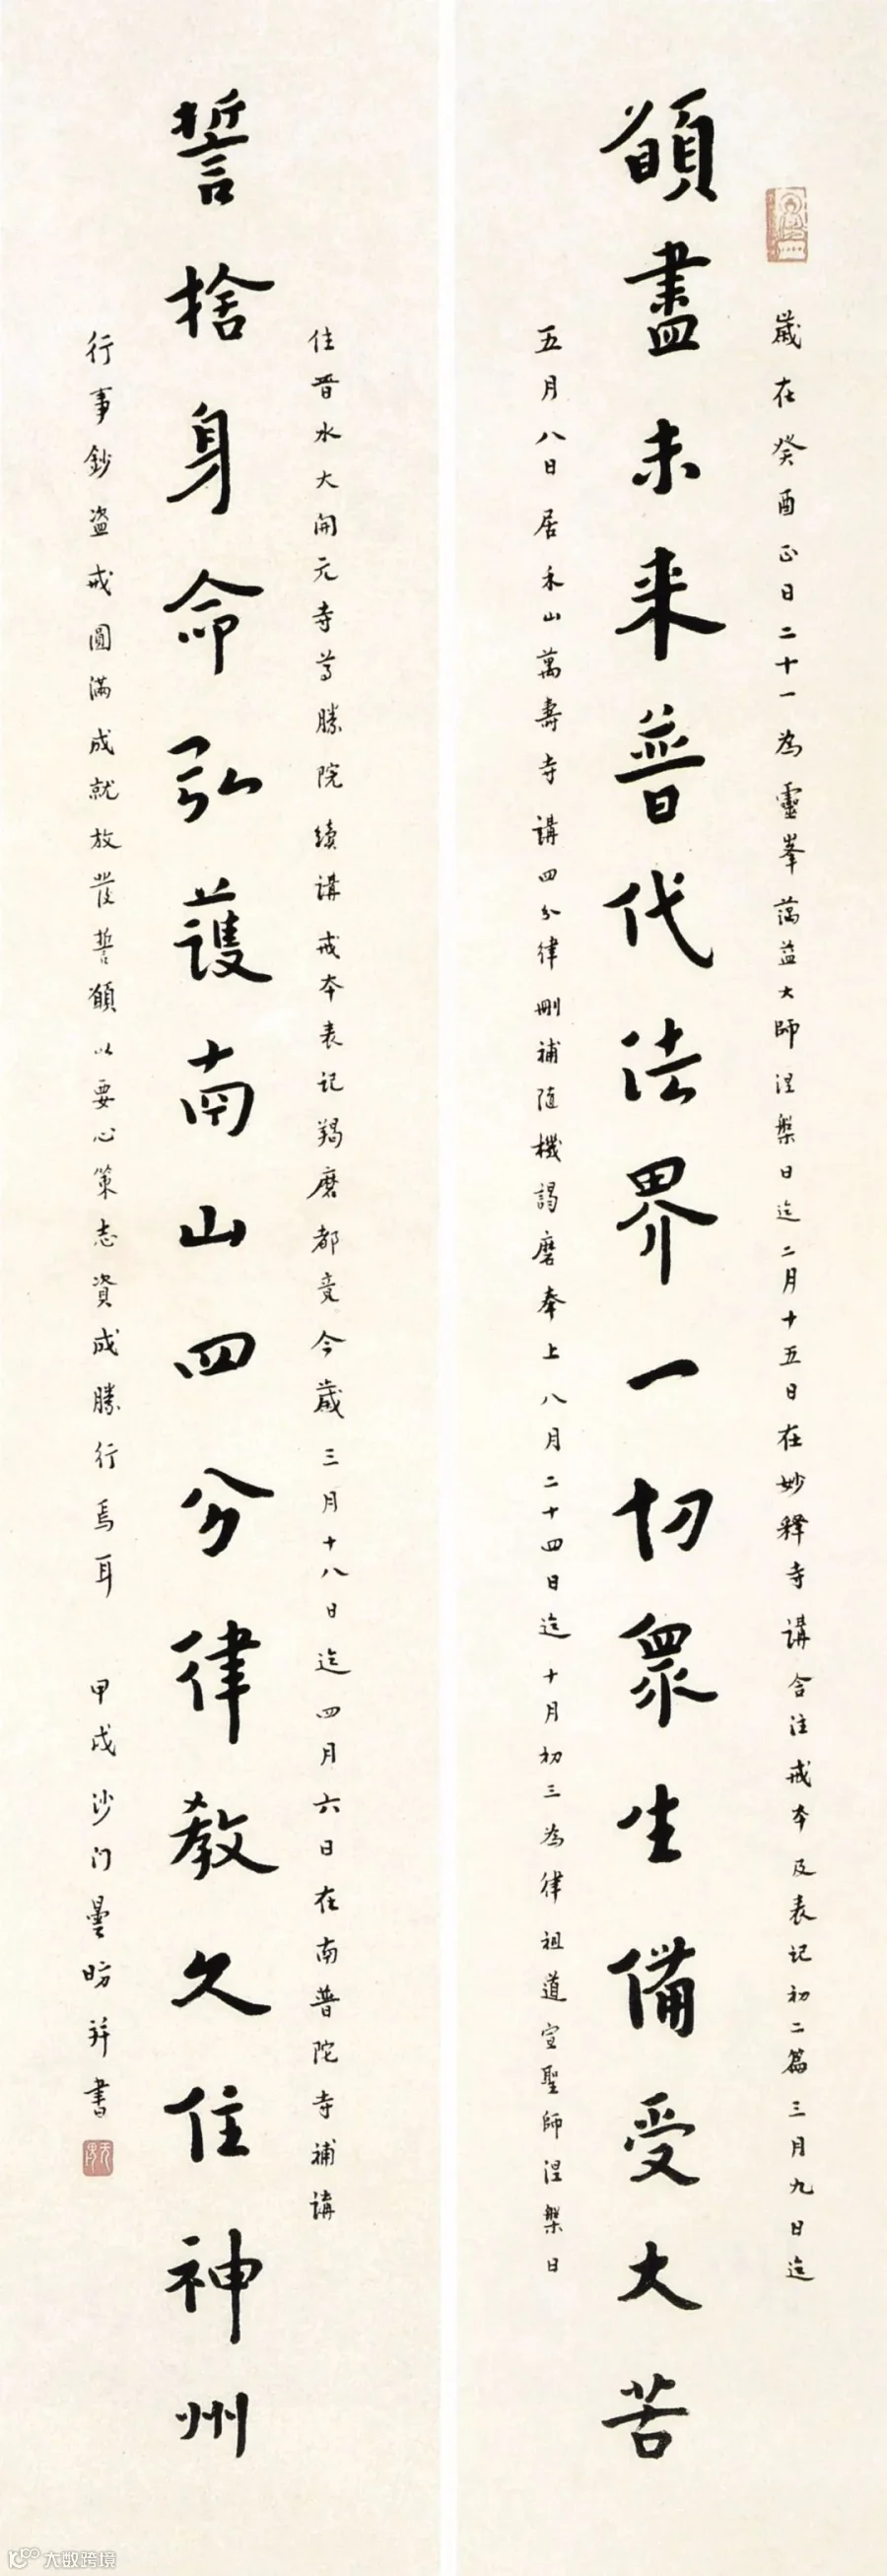 歲在癸酉正日二十一為靈峯蕅益大師涅槃日迄二月十五日在妙釋寺講合注戒本及表記初二篇三月九日迄
願盡未来普代法界一切眾生備受大苦
五月八日居禾山萬壽寺講四分律刪補随機羯磨奉上八月二十四日迄十月初三為律祖道宣聖師涅槃日
住晋水大開元寺尊勝院續講戒本表记羯磨都竟今歲三月十八日迄四月六日在南普陀寺補講
誓捨身命弘護南山四分律教久住神州
行事鈔盗戒圓滿成就放發誓願以要心策志資成勝行焉耳 甲戌沙门曇昉并書
大数跨境